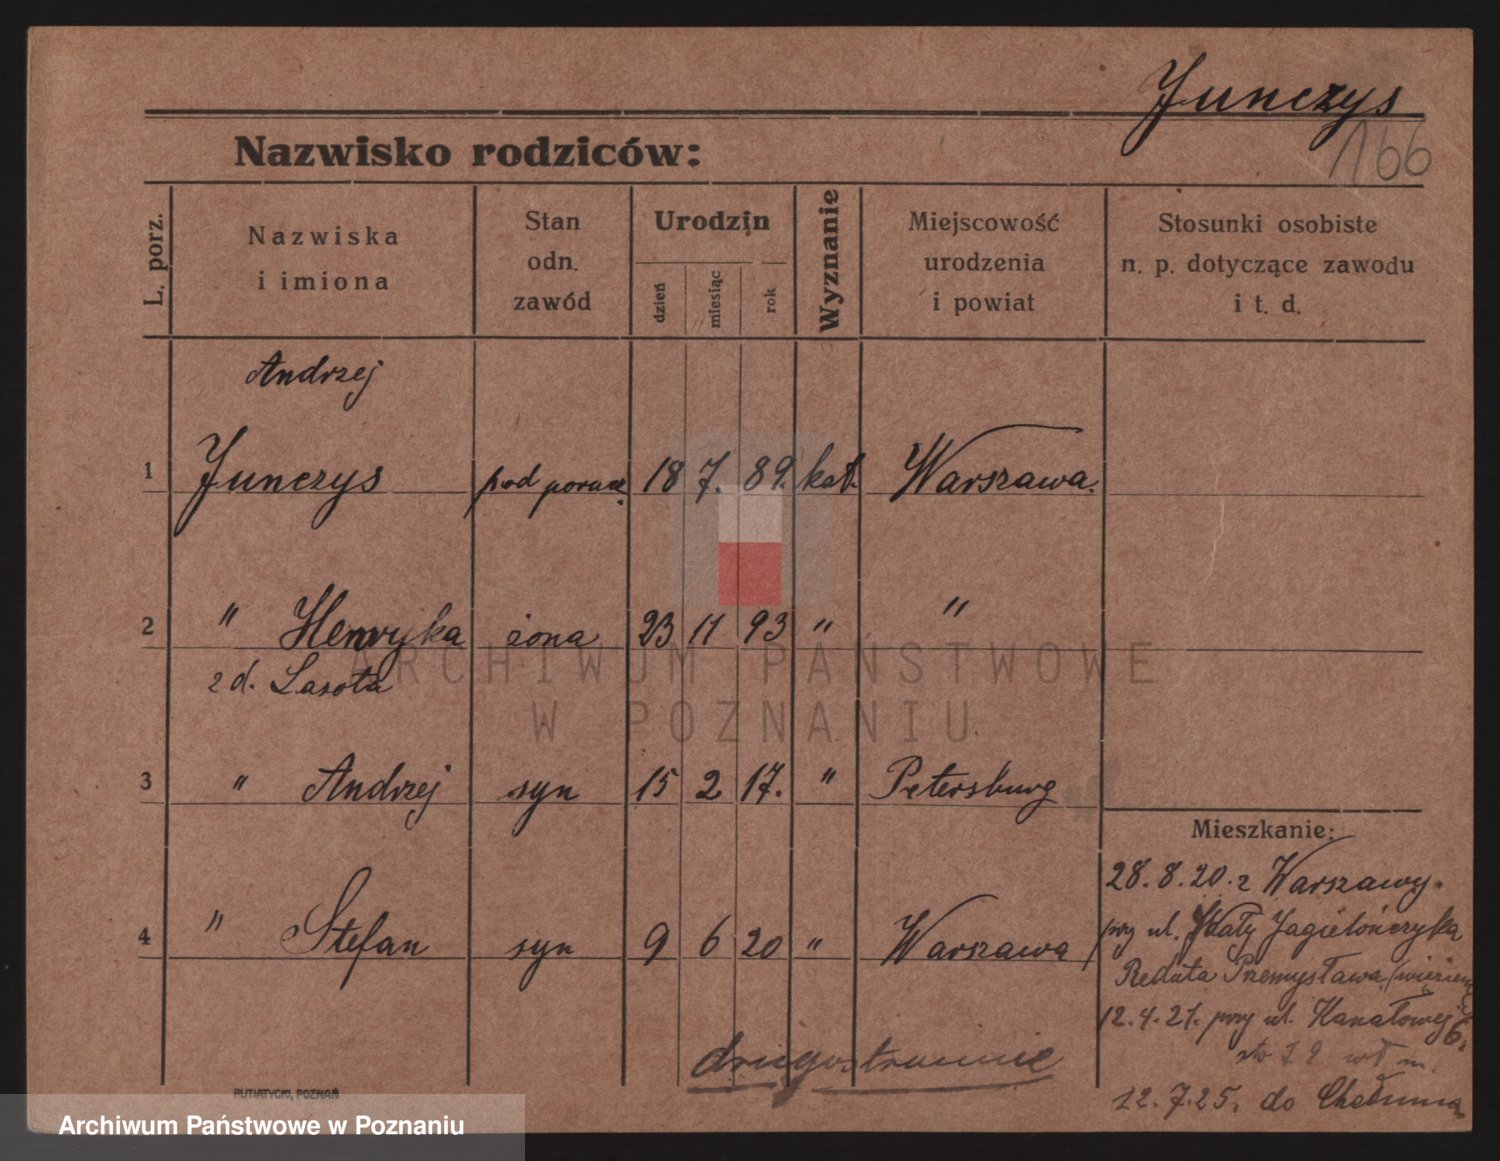 Junczys
166
Nazwisko rodziców:
L. porz.
Nazwiska
i imiona
Stan
odn.
zawód
Urodzin
dzień
miesiąc
rok
Wyznanie
Miejscowość
urodzenia
i powiat
Stosunki osobiste
n. p. dotyczące zawodu
i t. d.
Andrzej
1 Junczys pod porucz. 18 7. 89. kat. Warszawa.
2 " Henryka żona 23 11 93 " "
z d. Lasota
3 " Andrzej syn 15 2 17. " Petersburg
4 " Stefan syn 9 6 20 " Warszawa
Mieszkanie:
28. 8. 20. z Warszawy.
przy ul. Wały Jagielończyka
Reduta Przemysława
12. 4. 21. przy ul. Kanałowej 6.
12. 7. 25. do Chełmna
drugostronnie
PUTIATYCKI, POZNAŃ
ARCHIWUM PAŃSTWOWE
W POZNANIU
Archiwum Państwowe w Poznaniu